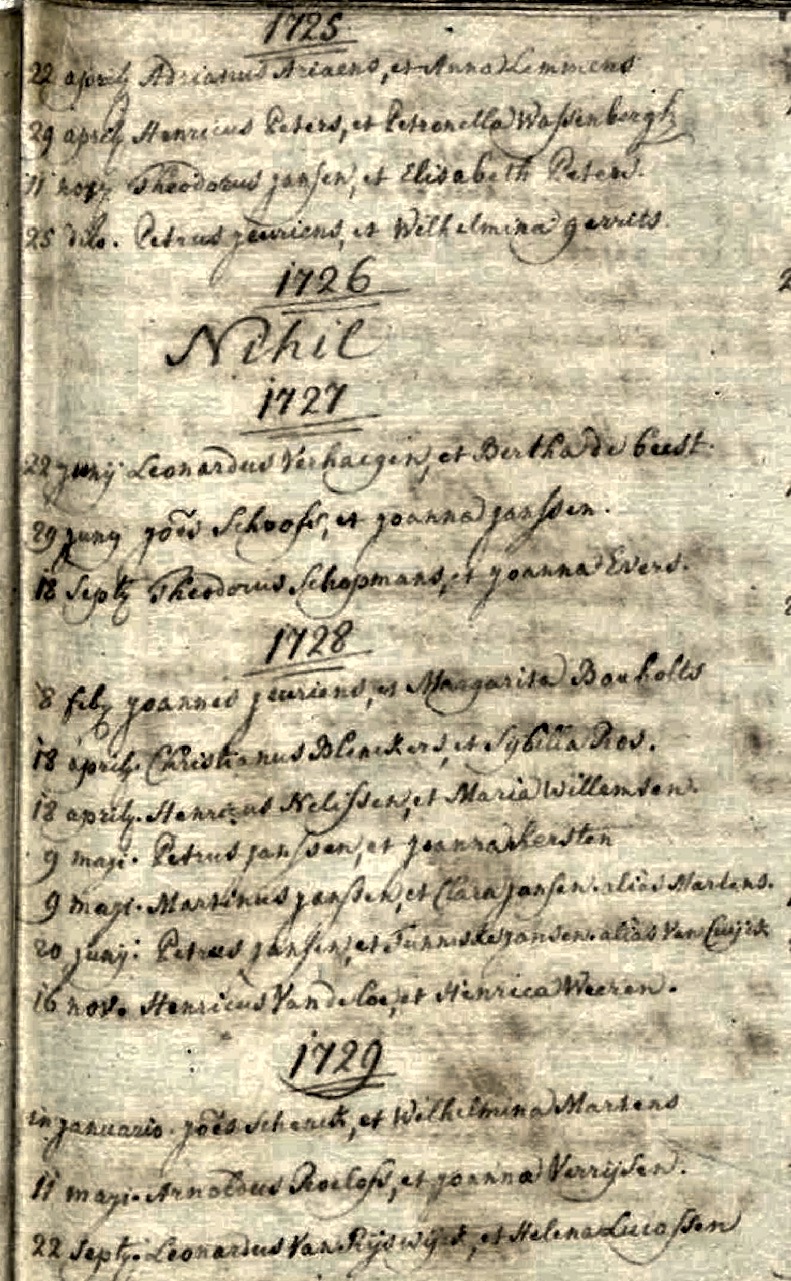 1725
22 aprilis Adrianus Ariaens, et Anna Lemmens
29 aprilis Henricus Peters, et Petronella Wassenbergh
11 novis Theodorus Jansen, et Elisabeth Peters.
25 dito. Petrus Jeuriens, et Wilhelmina Gerrits.
1726
Nihil
1727
22 Junij Leonardus Verhaegen, et Bertha de beest.
29 Juny Joës Schoofs, et Joanna Janssen.
18 Septis Theodorus Schopmans, et Joanna Evers.
1728
8 feb Joannes Jeuriens, et Margarita Bouholts
18 aprilis. Christianus Blenckers, et Sybilla Ros.
18 aprilis. Henricus Nelissen, et Maria Willemsen.
9 maji. Petrus Janssen, et Joanna Kersten
9 maji. Martinus Janssen, et Clara Jansen alias Martens.
20 Junij. Petrus Jansen, et Tunniske Jansen alias Van Cuijck
16 nov. Henricus Van de Loo, et Henrica Weeren.
1729
in Januario. Joës Schenck, et Wilhelmina Martens
11 maji. Arnoldus Roelofs, et Joanna Verrijsen.
22 Septis. Leonardus Van Rijswijck, et Helena Lucassen